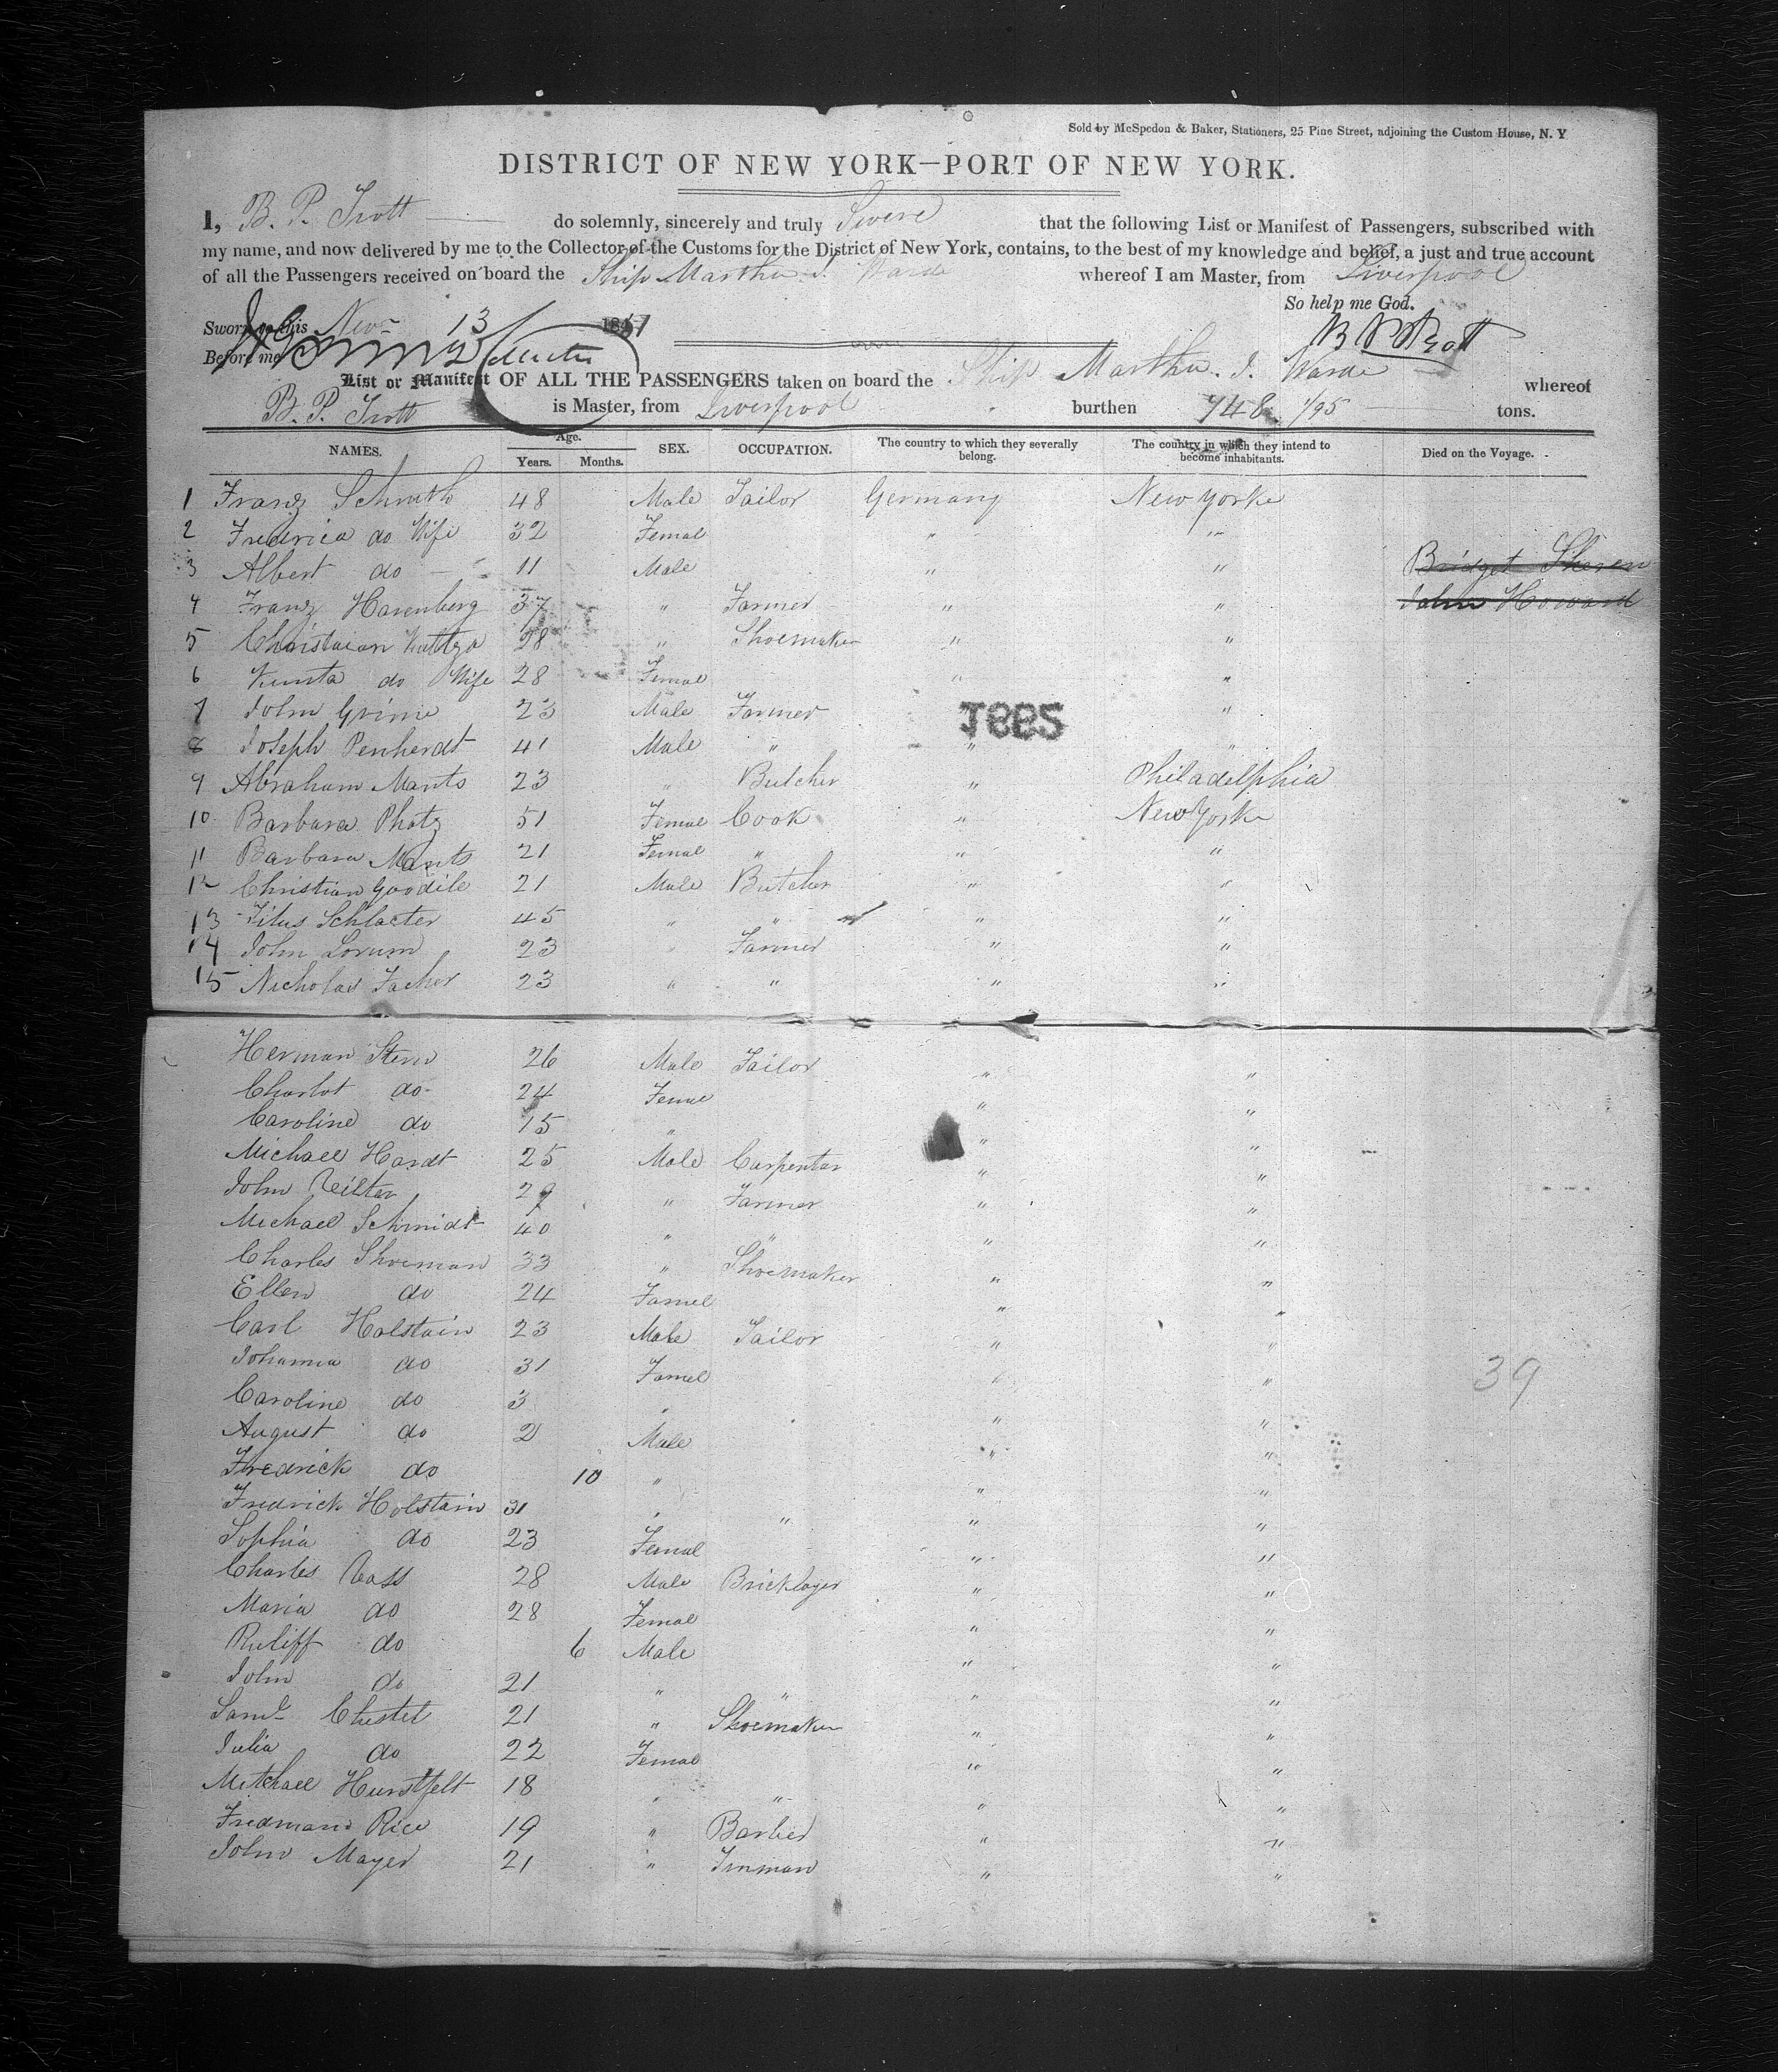 Sold by McSpedon & Baker, Stationers, 25 Pine Street, adjoining the Custom House, N. Y
DISTRICT OF NEW YORK—PORT OF NEW YORK.
I, B. P. Trott do solemnly, sincerely and truly Swere that the following List or Manifest of Passengers, subscribed with
my name, and now delivered by me to the Collector of the Customs for the District of New York, contains, to the best of my knowledge and belief, a just and true account
of all the Passengers received on board the Ship Martha J. Warde whereof I am Master, from Liverpool
So help me God.
Sworn to this Nov 13 1851
Before me
B P Trott
List or Manifest OF ALL THE PASSENGERS taken on board the Ship Martha. J. Warde whereof
B. P. Trott is Master, from Liverpool burthen 748 1/95 tons.
NAMES. Age. Years. Months. SEX. OCCUPATION. The country to which they severally belong. The country in which they intend to become inhabitants. Died on the Voyage.
1 Franz Schmith 48 Male Tailor Germany New Yorke
2 Frederica do Wife 32 Femal " "
3 Albert do 11 Male " " Bridget
4 Franz Harenberg 37 " Farmer " " John Howard
5 Christaian 28 " Shoemaker " "
6 do Wife 28 Femal " "
7 John Grime 23 Male Farmer " "
8 Joseph Penherdt 41 Male " " "
9 Abraham Mants 23 " Butcher " Philadelphia
10 Barbara Photz 51 Femal Cook " New Yorke
11 Barbara Mants 21 Femal " " "
12 Christian Goodile 21 Male Butcher " "
13 Titus Schlacter 45 " " " "
14 John Lorum 23 " Farmer " "
15 Nicholas Facher 23 " " " "
Herman Stern 26 Male Tailor " "
Charlot do 24 Femal " "
Caroline do 15 " " "
Michael Hardt 25 Male Carpenter " "
John 29 " Farmer " "
Michael Schmidt 40 " " " "
Charles Shoeman 33 " Shoemaker " "
Ellen do 24 Famel " "
Carl Holstain 23 Male Tailor " "
Johanna do 31 Famel " "
Caroline do 3 " " "
August do 2 Male " "
Fredrick do 10 " " "
Fredrick Holstain 31 " " " "
Sophia do 23 Femal " "
Charles Vass 28 Male Bricklayer " "
Maria do 28 Femal " "
Ruliff do 6 Male " "
John do 21 " " " "
Saml Chestet 21 " Shoemaker " "
Julia do 22 Femal " "
Mitchael Hurstfelt 18 " " " "
Fredmand Rice 19 " Barber " "
John Mayer 21 " Tinman " "
39